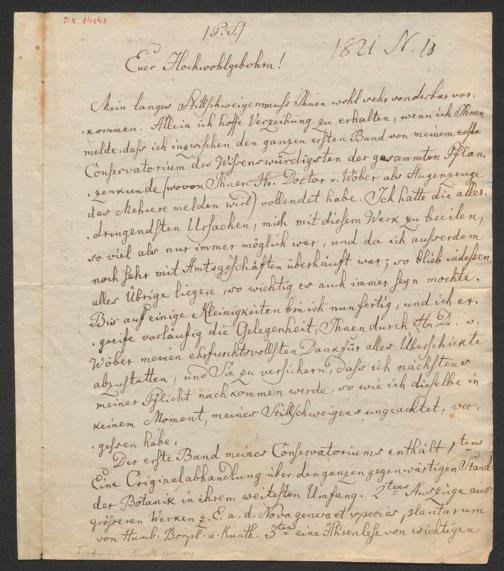 [P. T.]
1821 N. 10
Euer Hochwohlgebohrn!
Mein langes Stillschweigen muss Ihnen wohl sehr sonderbar vor-
-kommen. Allein ich hoffe Verzeihung zu erhalten, wenn ich Ihnen
melde, dass ich inzwischen den ganzen ersten Band von meinem
Conservatorium des Wissenswürdigsten der gesammten Pflan-
-zenkunde (wovon Ihnen Hr. Doctor v. Wöber als Augenzeuge
das Mehrere melden wird) vollendet habe. Ich hatte die aller-
-dringendsten Ursachen, mich mit diesem Werk zu beeilen,
so viel als nur immer möglich war, und da ich ausserdem
noch sehr mit Amtsgeschäften überhäuft war; so blieb indessen
alles Übrige liegen, so wichtig es auch immer seyn mochte.
Bis auf einige Kleinigkeiten bin ich nun fertig, und ich er-
-greife vorläufig die Gelegenheit, Ihnen durch Hn D. v.
Wöber meinen ehrfurchtsvollsten Dank für alles Überschickte
abzustatten, und Sie zu versichern, dass ich nächstens
meiner Pflicht nachkommen werde, so wie ich dieselbe in
keinem Moment, meines Stillschweigens ungeachtet, ver-
-gessen habe.
Der erste Band meines Conservatoriums enthält 1tens
Eine Originalabhandlung über den ganzen gegenwärtigen Stand
der Botanik in ihrem weitesten Umfang. 2tens Auszüge aus
grösseren Werken z. E. a. d. Nova genera et species plantarum
von Humb. Bonpl. u. Kunth. 3tens eine Ährenlese von wichtigen